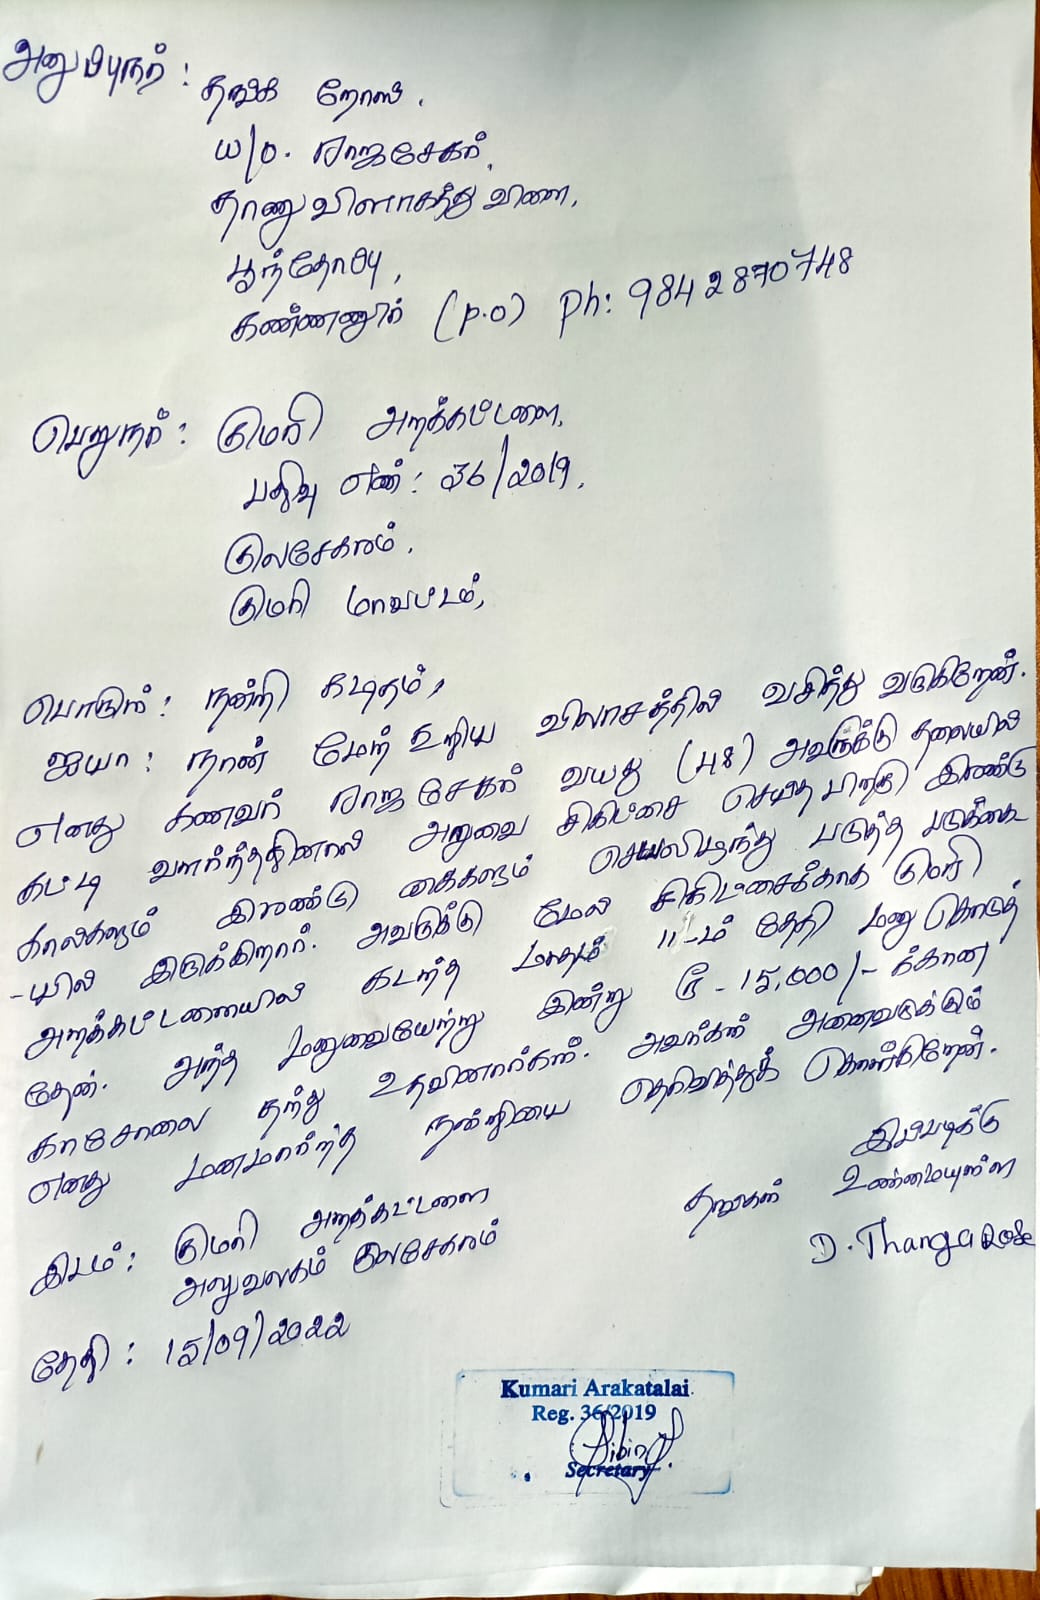 அனுப்புநர் : தங்க றோஸ்.
W/O. ராஜசேகர்,
தாணுவிளாகத்து விளை,
பூந்தோப்பு,
கண்ணனூர் (P.O) Ph: 9842870748
பெறுநர் : குமரி அறக்கட்டளை,
பதிவு எண் : 36/2019,
குலசேகரம்.
குமரி மாவட்டம்,
பொருள் : நன்றி கடிதம்,
ஐயா : நான் மேற் கூறிய விலாசத்தில் வசித்து வருகிறேன்.
எனது கணவர் ராஜசேகர் வயது (48) அவருக்கு தலையில்
கட்டி வளர்ந்ததினால் அறுவை சிகிட்சை செய்த பிறகு இரண்டு
கால்களும் இரண்டு கைகளும் செயலிழந்து படுத்த படுக்கை
-யில் இருக்கிறார். அவருக்கு மேல் சிகிட்சைக்காக குமரி
அறக்கட்டளையில் கடந்த மாதம் 11-ம் தேதி மனு கொடுத்
தேன். அந்த மனுவையேற்று இன்று ரூ - 15,000/- க்கான
காசோலை தந்து உதவினார்கள். அவர்கள் அனைவருக்கும்
எனது மனமார்ந்த நன்றியை தெரிவித்துக் கொள்கிறேன்.
இப்படிக்கு
தங்கள் உண்மையுள்ள
D. Thanga Rose
இடம் : குமரி அறக்கட்டளை
அலுவலகம் குலசேகரம்
தேதி : 15/09/2022
Kumari Arakatalai
Reg. 36/2019
Secretary